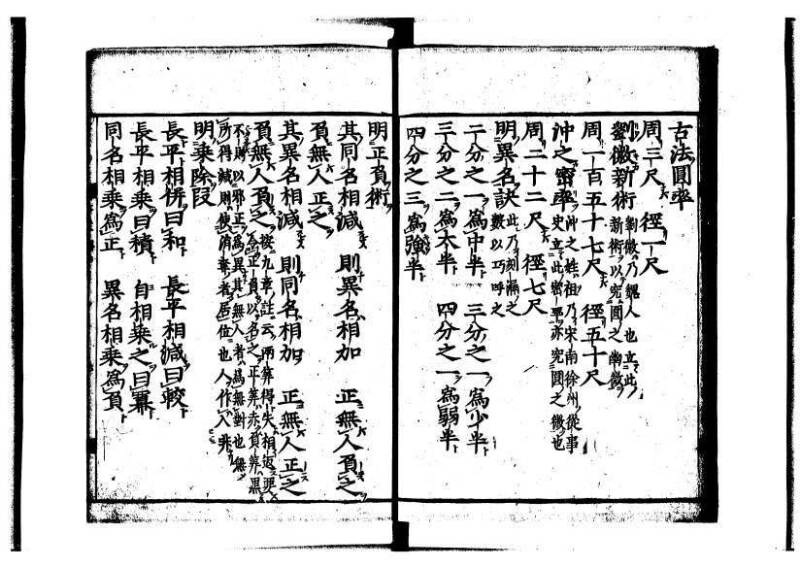 古法圓率
周三尺　徑一尺
劉徽新術 劉徽乃魏人也立此
新術以究圓之幽微
周一百五十七尺　徑五十尺
沖之密率 沖之姓祖乃宋南徐州從事
史立此密率亦究圓之微也
周二十二尺　徑七尺
明異名訣 此乃刻漏之
數以巧呼之
二分之一為中半　三分之一為少半
三分之二為太半　四分之一為弱半
四分之三為強半
明正負術
其同名相減　則異名相加　正無人負之
負無人正之
其異名相減　則同名相加　正無人正之
負無人負之 按九章註云兩算得失相返要
令正負以名之正算赤負算黑
不則以邪正為異其無人者為無對也無
所得減則使消奪者居位也人作入非
明乘除段
長平相併曰和　長平相減曰較
長平相乘曰積　自相乘之曰冪
同名相乘為正　異名相乘為負